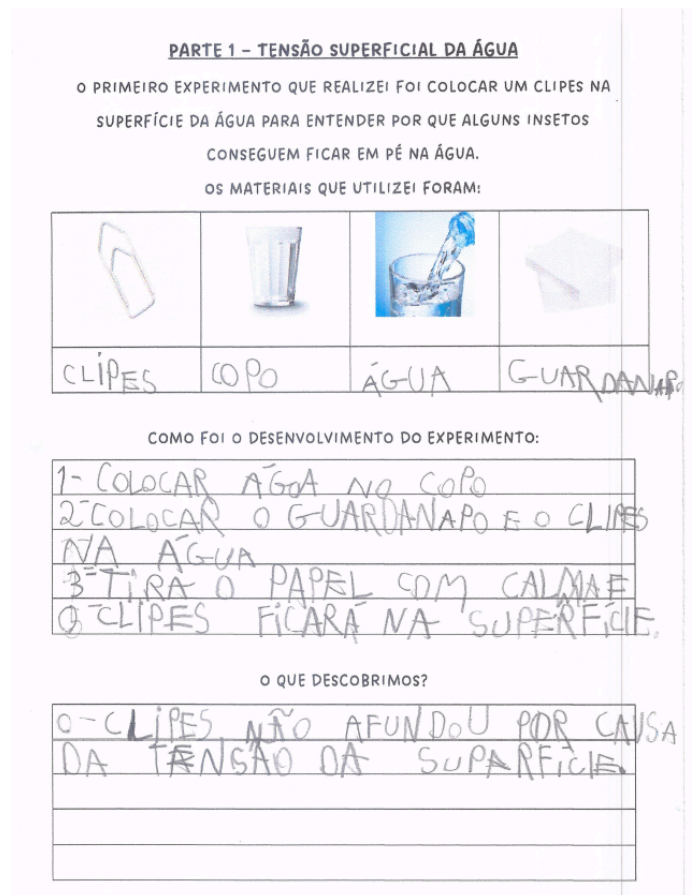 PARTE 1 – TENSÃO SUPERFICIAL DA ÁGUA
O PRIMEIRO EXPERIMENTO QUE REALIZEI FOI COLOCAR UM CLIPES NA
SUPERFÍCIE DA ÁGUA PARA ENTENDER POR QUE ALGUNS INSETOS
CONSEGUEM FICAR EM PÉ NA ÁGUA.
OS MATERIAIS QUE UTILIZEI FORAM:
CLIPES COPO ÁGUA GUARDANAPO
COMO FOI O DESENVOLVIMENTO DO EXPERIMENTO:
1- COLOCAR ÁGOA NO COPO
2-COLOCAR O GUARDANAPO E O CLIPES
NA ÁGUA
3-TIRA O PAPEL COM CALMA E
O-CLIPES FICARÁ NA SUPERFÍCIE.
O QUE DESCOBRIMOS?
O-CLIPES NÃO AFUNDOU POR CAUSA
DA TENSÃO DA SUPARFICIE.